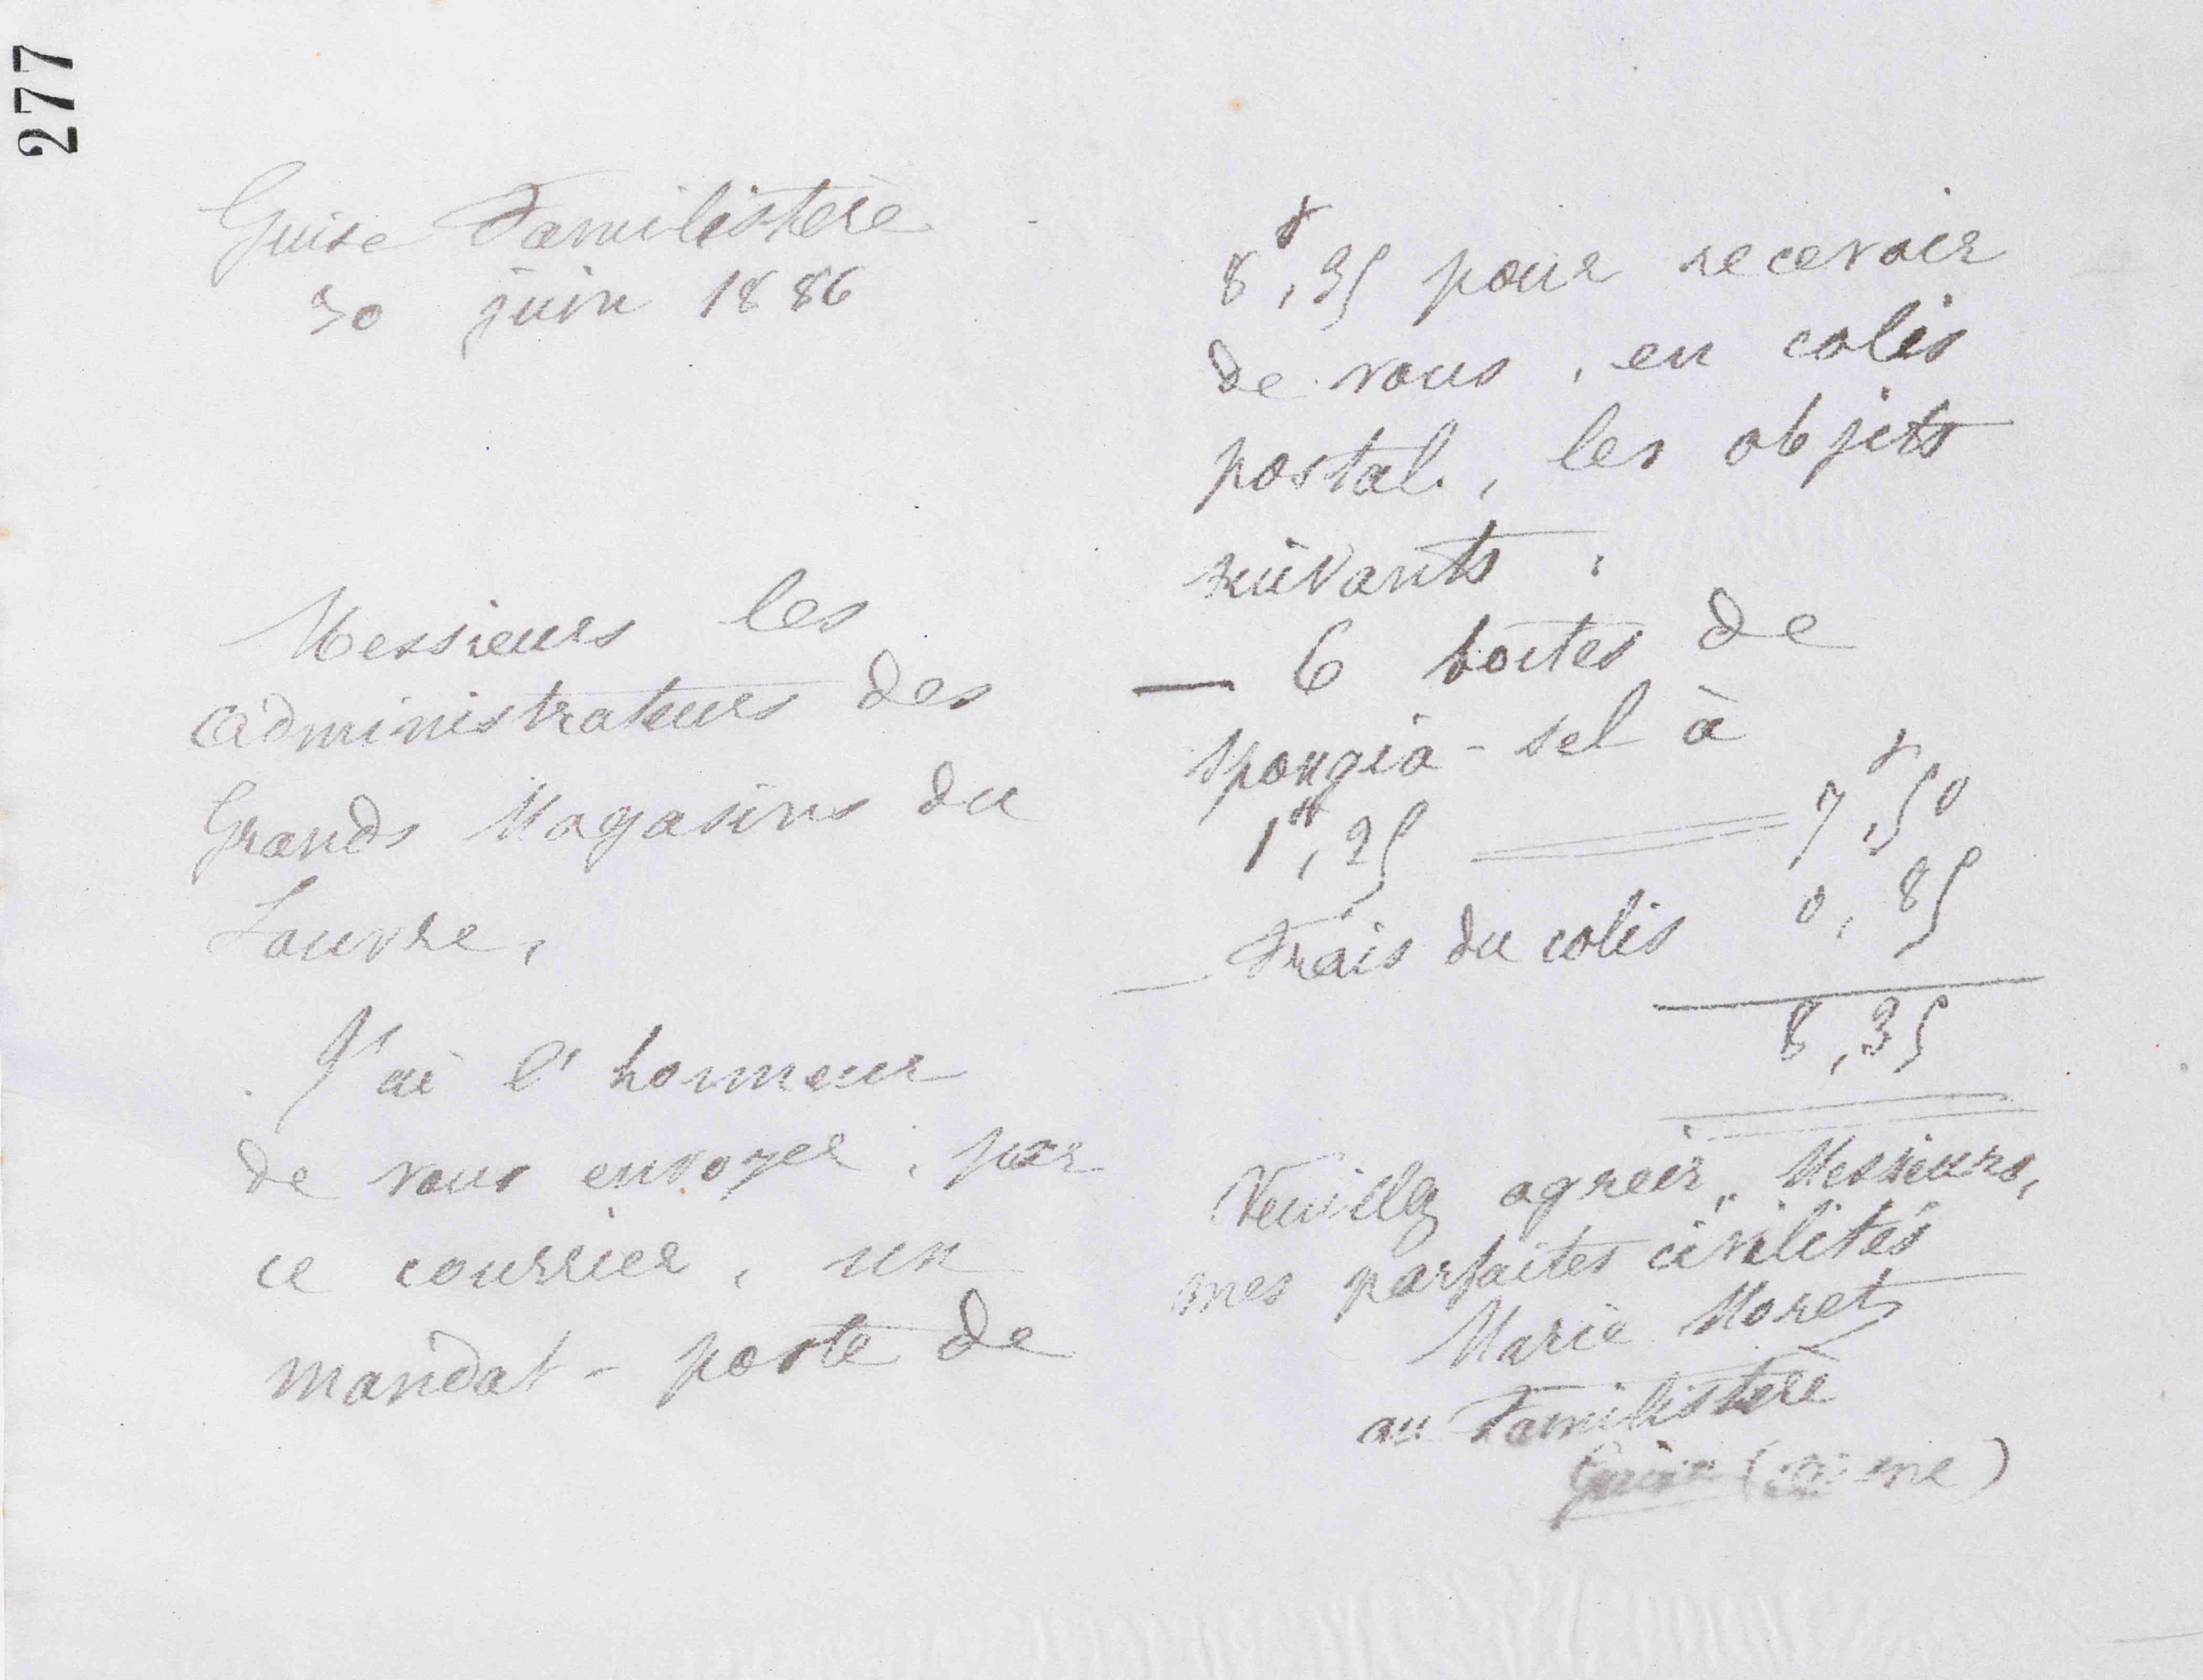 277
Guise Familistère
30 juin 1886
Messieurs les
administrateurs des
Grands Magasins du
Louvre,
J'ai l'honneur
de vous envoyer, par
ce courrier, un
mandat-poste de
8f,35 pour recevoir
de vous, en colis
postal, les objets
suivants :
— 6 boites de
spongia-sel à
1f,25 == 7f,50
— Frais du colis 0,85
8,35
Veuillez agréer, Messieurs,
mes parfaites civilités
Marie Moret
au Familistère
Guise (Aisne)